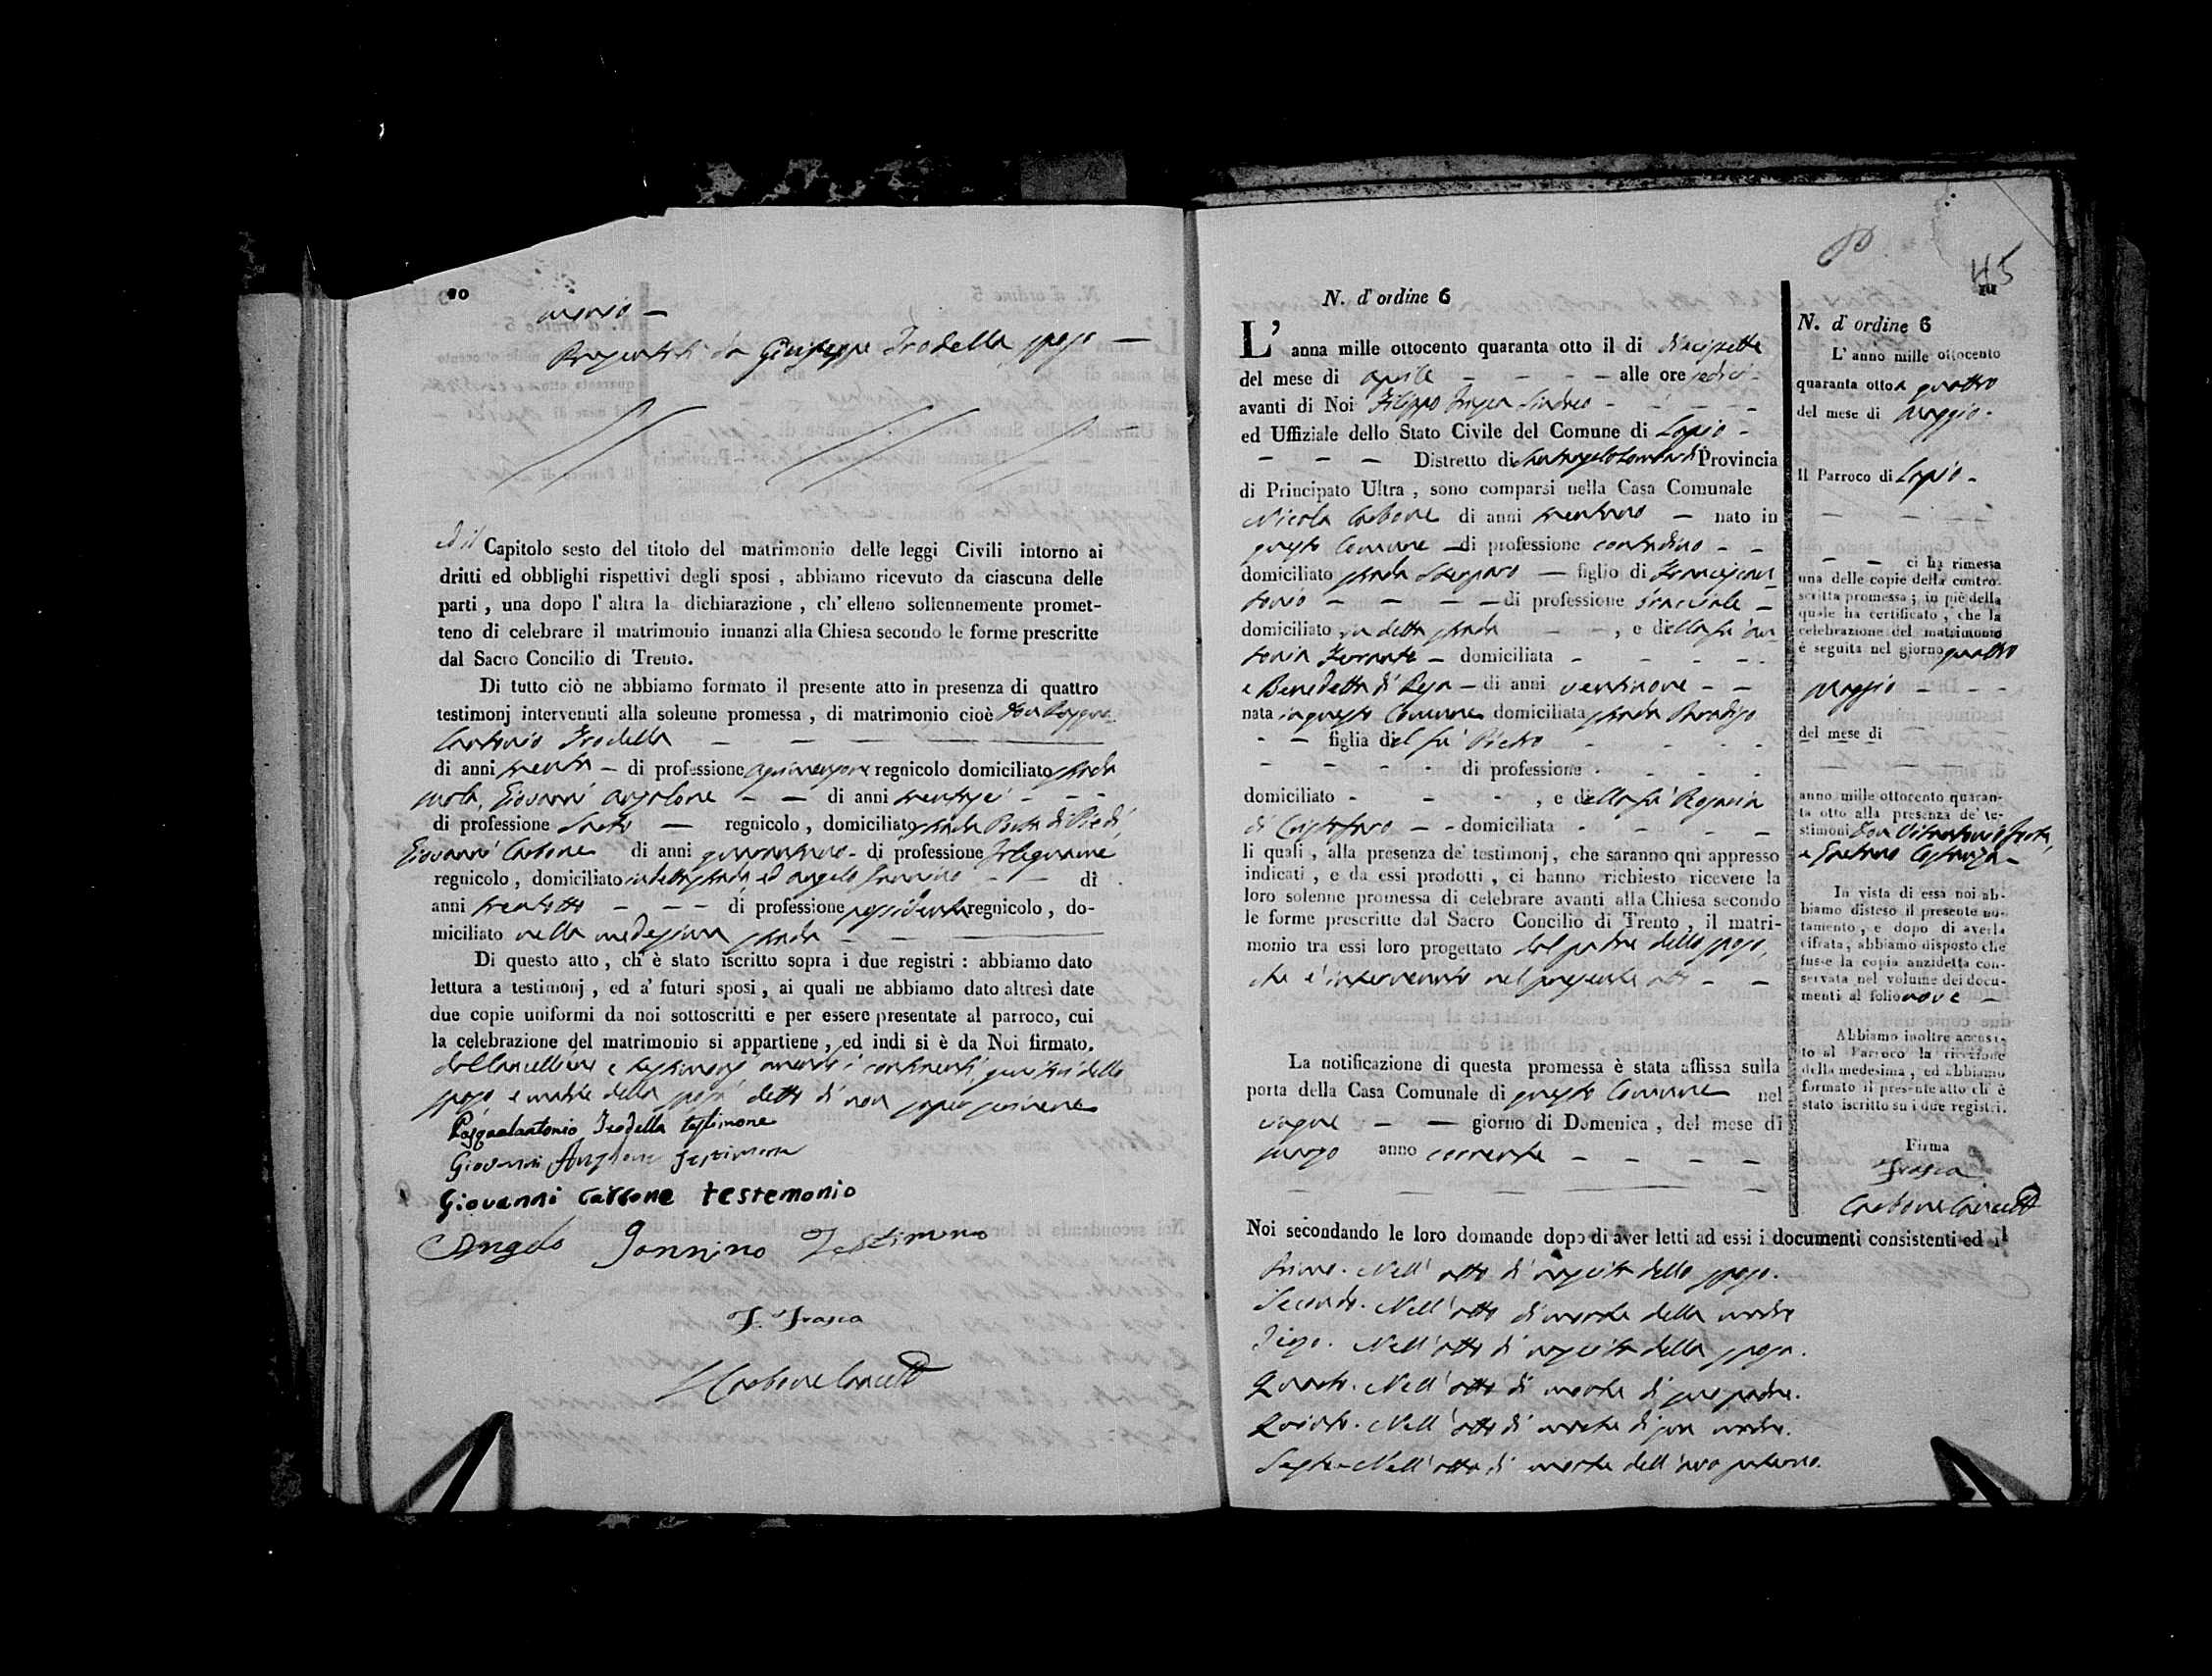 monio —
Presentati da Giuseppe Frodella sposo —
ed il Capitolo sesto del titolo del matrimonio delle leggi Civili intorno ai
dritti ed obblighi rispettivi degli sposi , abbiamo ricevuto da ciascuna delle
parti , una dopo l' altra la dichiarazione , ch' elleno sollennemente promet-
teno di celebrare il matrimonio innanzi alla Chiesa secondo le forme prescritte
dal Sacro Concilio di Trento.
Di tutto ciò ne abbiamo formato il presente atto in presenza di quattro
testimonj intervenuti alla solenne promessa , di matrimonio cioè Don Pasqua
lantonio Frodella — — — — —
di anni trenta — di professione agrimensore regnicolo domiciliato strada
Giovanni Anzalone — — di anni trentasei - - -
di professione Sarto — regnicolo , domiciliato strada Piedi
Giovanni Carbone di anni di professione Falegname
regnicolo , domiciliato in detta strada ed Angelo Jannino - — di
anni trentotto — - — di professione possidente regnicolo , do-
miciliato nella medesima strada — — —
Di questo atto , ch' è stato iscritto sopra i due registri : abbiamo dato
lettura a testimonj , ed a' futuri sposi , ai quali ne abbiamo dato altresì date
due copie uniformi da noi sottoscritti e per essere presentate al parroco, cui
la celebrazione del matrimonio si appartiene , ed indi si è da Noi firmato.
dal Cancelliere e testimonj avendo i contraenti genitori dello
sposo e madre della sposa detto di non saper scrivere
Pasqualantonio Frodella testimone
Giovanni Anzalone testimone
Giovanni Carbone testemonio
Angelo Jannino Testimono
F. Frasca
Carbone Cancell
45
N. d' ordine 6
L' anna mille ottocento quaranta otto il di diecisette
del mese di aprile — — — — alle ore sedici -
avanti di Noi Filippo Frasca Sindaco - - - — —
ed Uffiziale dello Stato Civile del Comune di Lapio -
— — — Distretto di Santangelo Lombardi Provincia
di Principato Ultra , sono comparsi nella Casa Comunale
Nicola Carbone di anni trentuno — nato in
questo Comune — di professione contadino - -
domiciliato strada — figlio di Francescan
tonio — — — — di professione bracciale —
domiciliato in detta strada — — , e della fu An
tonia Ferrante — domiciliata - - - - -
e Benedetta di Resa — di anni ventinove - -
nata in questo Comune domiciliata strada Paradiso
- — figlia del fu Pietro - - - -
- - - - di professione - - - -
domiciliato - - - , e della fu Rosaria
di Cristofaro — - domiciliata - - - -
li quali , alla presenza de' testimonj , che saranno quì appresso
indicati , e da essi prodotti , ci hanno richiesto ricevere la
loro solenne promessa di celebrare avanti alla Chiesa secondo
le forme prescritte dal Sacro Concilio di Trento , il matri-
monio tra essi loro progettato dal padre dello sposo,
che è intervenuto nel presente atto — —
La notificazione di questa promessa è stata affissa sulla
porta della Casa Comunale di questo Comune nel
cinque — — giorno di Domenica , del mese di
marzo anno corrente — — — —
Noi secondando le loro domande dopo di aver letti ad essi i documenti consistenti ed il
Primo. Nell' atto di nascita dello sposo.
Secondo. Nell' atto di morte della madre
Terzo. Nell' atto di nascita della sposa.
Quarto. Nell' atto di morte di suo padre.
Quinto. Nell' atto di morte di sua madre.
Sesto. Nell' atto di morte dell' avo paterno.
N. d' ordine 6
L' anno mille ottocento
quaranta otto a quattro
del mese di Maggio -
Il Parroco di Lapio -
— — — —
— — ci ha rimessa
una delle copie della contro-
scritta promessa ; in piè della
quale ha certificato , che la
celebrazione del matrimonio
è seguita nel giorno quattro
Maggio — - -
del mese di
anno mille ottocento quaran-
ta otto alla presenza de' te-
stimoni Don
e Gaetano Costanza —
In vista di essa noi ab-
biamo disteso il presente no-
tamento , e dopo di averla
cifrata , abbiamo disposto che
fusse la copia anzidetta con-
servata nel volume dei docu-
menti al folio nove —
Abbiamo inoltre accusa-
to al Parroco la ricezione
della medesima , ed abbiamo
formato il presente atto ch' è
stato iscritto su i due registri.
Firma
Frasca
Carbone Cancell